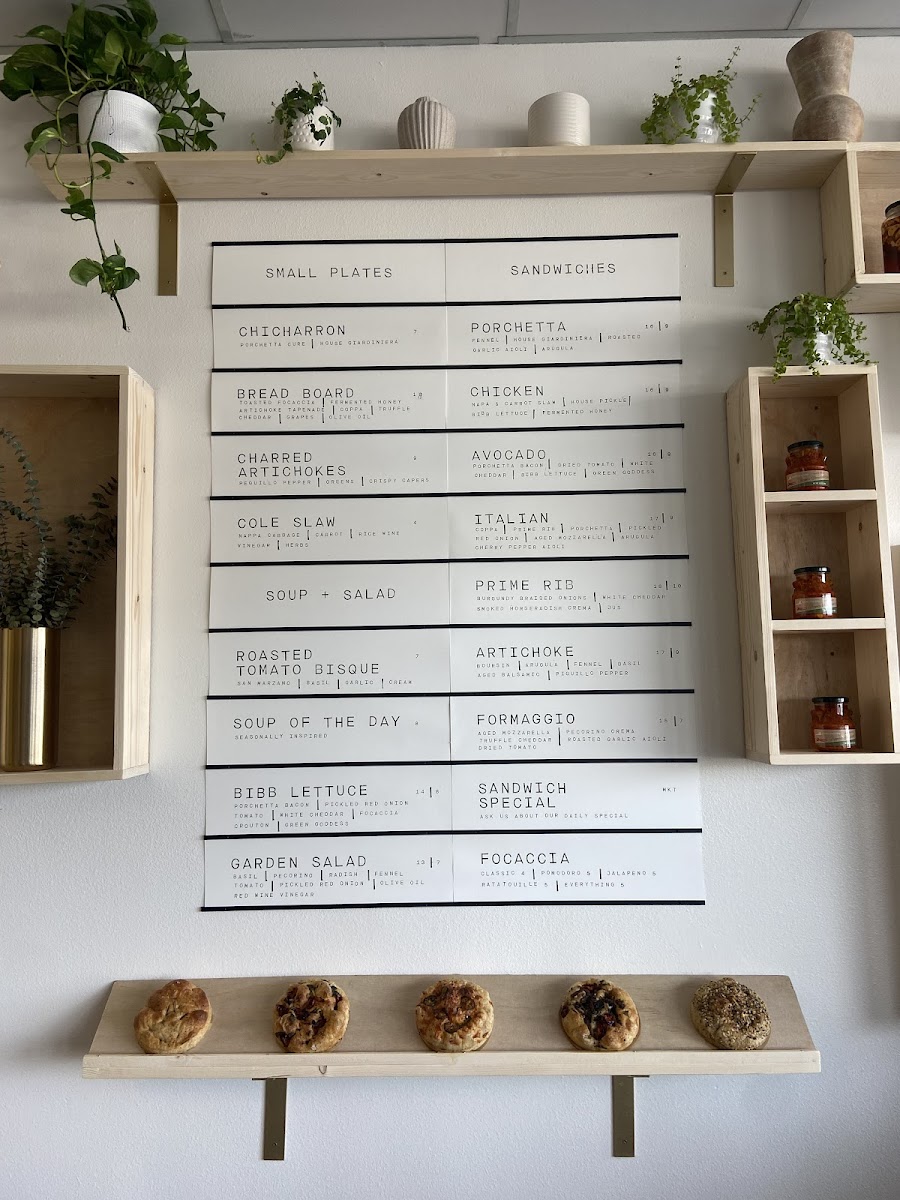 SMALL PLATES
CHICHARRON 7
PORCHETTA CURE | HOUSE GIARDINIERA
BREAD BOARD
TOASTED FOCACCIA | FERMENTED HONEY
ARTICHOKE TAPENADE | COPPA | TRUFFLE
CHEDDAR | GRAPES | OLIVE OIL
CHARRED
ARTICHOKES
PEQUILLO PEPPER | GREENS | CRISPY CAPERS
COLE SLAW
NAPPA CABBAGE | CARROT | RICE WINE
VINEGAR | HERBS
SOUP + SALAD
ROASTED
TOMATO BISQUE 7
SAN MARZANO | BASIL | GARLIC | CREAM
SOUP OF THE DAY
SEASONALLY INSPIRED
BIBB LETTUCE 14|8
PORCHETTA BACON | PICKLED RED ONION
TOMATO | WHITE CHEDDAR | FOCACCIA
CROUTON | GREEN GODDESS
GARDEN SALAD 13|7
BASIL | PECORINO | RADISH | FENNEL
TOMATO | PICKLED RED ONION | OLIVE OIL
RED WINE VINEGAR
SANDWICHES
PORCHETTA
FENNEL | HOUSE GIARDINIERA | ROASTED
GARLIC AIOLI | ARUGULA
CHICKEN
NAPA & CARROT SLAW | HOUSE PICKLE|
BIBB LETTUCE | FERMENTED HONEY
AVOCADO
PORCHETTA BACON | DRIED TOMATO | WHITE
CHEDDAR | BIBB LETTUCE | GREEN GODDESS
ITALIAN
COPPA | PRIME RIB | PORCHETTA | PICKLED
RED ONION | AGED MOZZARELLA | ARUGULA
CHERRY PEPPER AIOLI
PRIME RIB
BURGUNDY BRAISED ONIONS | WHITE CHEDDAR
SMOKED HORSERADISH CREMA | JUS
ARTICHOKE
BOURSIN | ARUGULA | FENNEL | BASIL
AGED BALSAMIC | PIQUILLO PEPPER
FORMAGGIO
AGED MOZZARELLA | PECORINO CREMA
TRUFFLE CHEDDAR | ROASTED GARLIC AIOLI
DRIED TOMATO
SANDWICH MKT
SPECIAL
ASK US ABOUT OUR DAILY SPECIAL
FOCACCIA
CLASSIC 4 | POMODORO 5 | JALAPENO 5
RATATOUILLE 5 | EVERYTHING 5